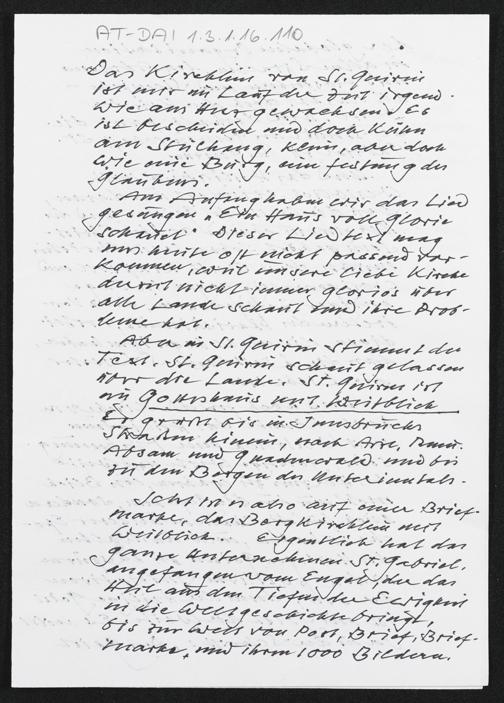 AT-DAI 1.3.1.16.110
Das Kirchlein von St. Quirin
ist mir im Lauf der Zeit irgend-
wie ans Herz gewachsen. Es
ist bescheiden und doch kühn
am Steilhang, klein, aber doch
wie eine Burg, eine Festung des
Glaubens.
Am Anfang haben wir das Lied
gesungen „Ein Haus voll Glorie
schauet". Dieser Liedtext mag
uns heute oft nicht passend vor-
kommen, weil unsere liebe Kirche
derzeit nicht immer gloriös über
alle Lande schaut und ihre Prob-
leme hat.
Aber in St. Quirin stimmt der
Text. St. Quirin schaut gelassen
über die Lande. St. Quirin ist
ein Gotteshaus mit Weitblick
Er grüßt bis in Innsbrucks
Straßen hinein, nach Arzl, Rum,
Absam und Gnadenwald und bis
zu den Bergen des Unterinntals.
Jetzt ist es also auf einer Brief-
marke, das Bergkirchlein mit
Weitblick. Eigentlich hat das
ganze Unternehmen St. Gabriel,
angefangen vom Engel, der das
Heil aus den Tiefen der Ewigkeit
in die Weltgeschichte bringt,
bis zur Welt von Post, Brief, Brief-
marke, und ihren 1000 Bildern.